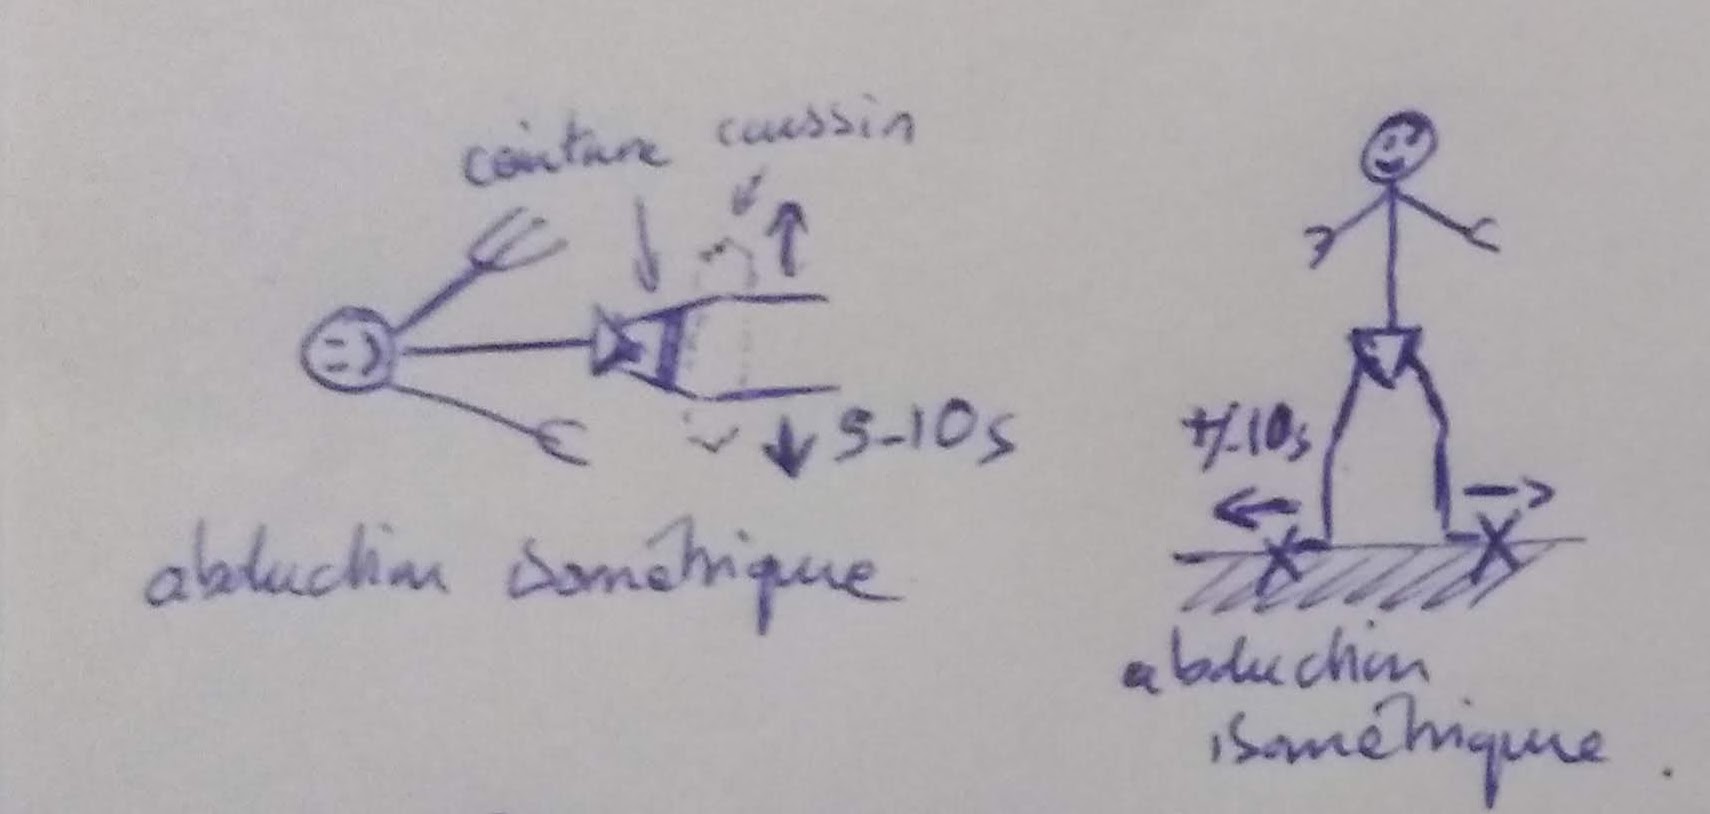 ceinture coussin
5-10s
abduction isométrique
+/-10s
abduction
isométrique.